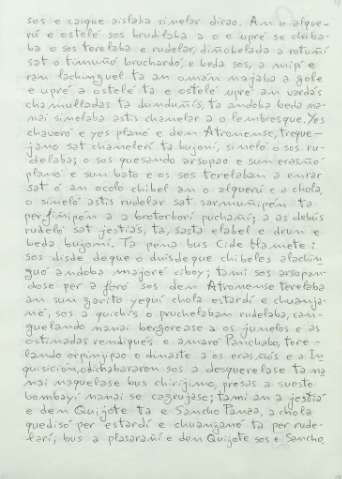 sos e caique aislaba sinelar dirao. Am o alque-
rú e ostelé sos brudilaba a o e upré se chiba-
ba o sos terelaba e rudelar, diñobelada a rotuñi
sat o timuñó bruchardó, e beda sos, a nuipi e
rani lachinguel ta an oman najaba a gole
e upré a ostelé ta e ostelé upré an vardás
chamulladas ta dunduñis, ta andoba beda na-
nai sinelaba astis chanelar a o lembresque. Yes
chaveró e yes planó e dem Atronense, treque-
jano sat chanelerí ta bujoní, sineló o sos ru-
delaba; o sos quesando arsopao e sun erasnó
planó e sun bato e os sos terelaban a enrar
sat é an ocolo chibel am o alquerú e a chola,
o sineló astis rudelar sat sarmuñipén ta
perfinipén a a broterborí puchani; a as debús
rudeló sat jestiás, ta, sasta elabel e drun e
beda bujoni. Ta pena bus Cide Hamete:
sos disde deque o duisdeque chibeles alachin-
guó andoba majoré ciboy; tami sos arsopan-
dose per a foró sos dem Atronense terelaba
am sun garito yequi chola estardí e chuanja-
né, sos a quichís o pruchelaban rudelaba, can-
guelando nanai bergorease a os junelos e as
ostinadas rendiqués e amaré Panchabo, tere-
lando orpinipao o dinaste a os eras,cuis e a In
quisición,odichabararon sos a desquerelase ta na
nai naquelase bus chirijimo, presas a sueste
bombayí nanai se cazrujase; tami an a jestiá
e dem Quijote ta e Sancho Panza, a chola
quedisó per estardí e chuanjané ta per rude-
larí, bus a plasarañí e dem Quijote sos e Sancho,